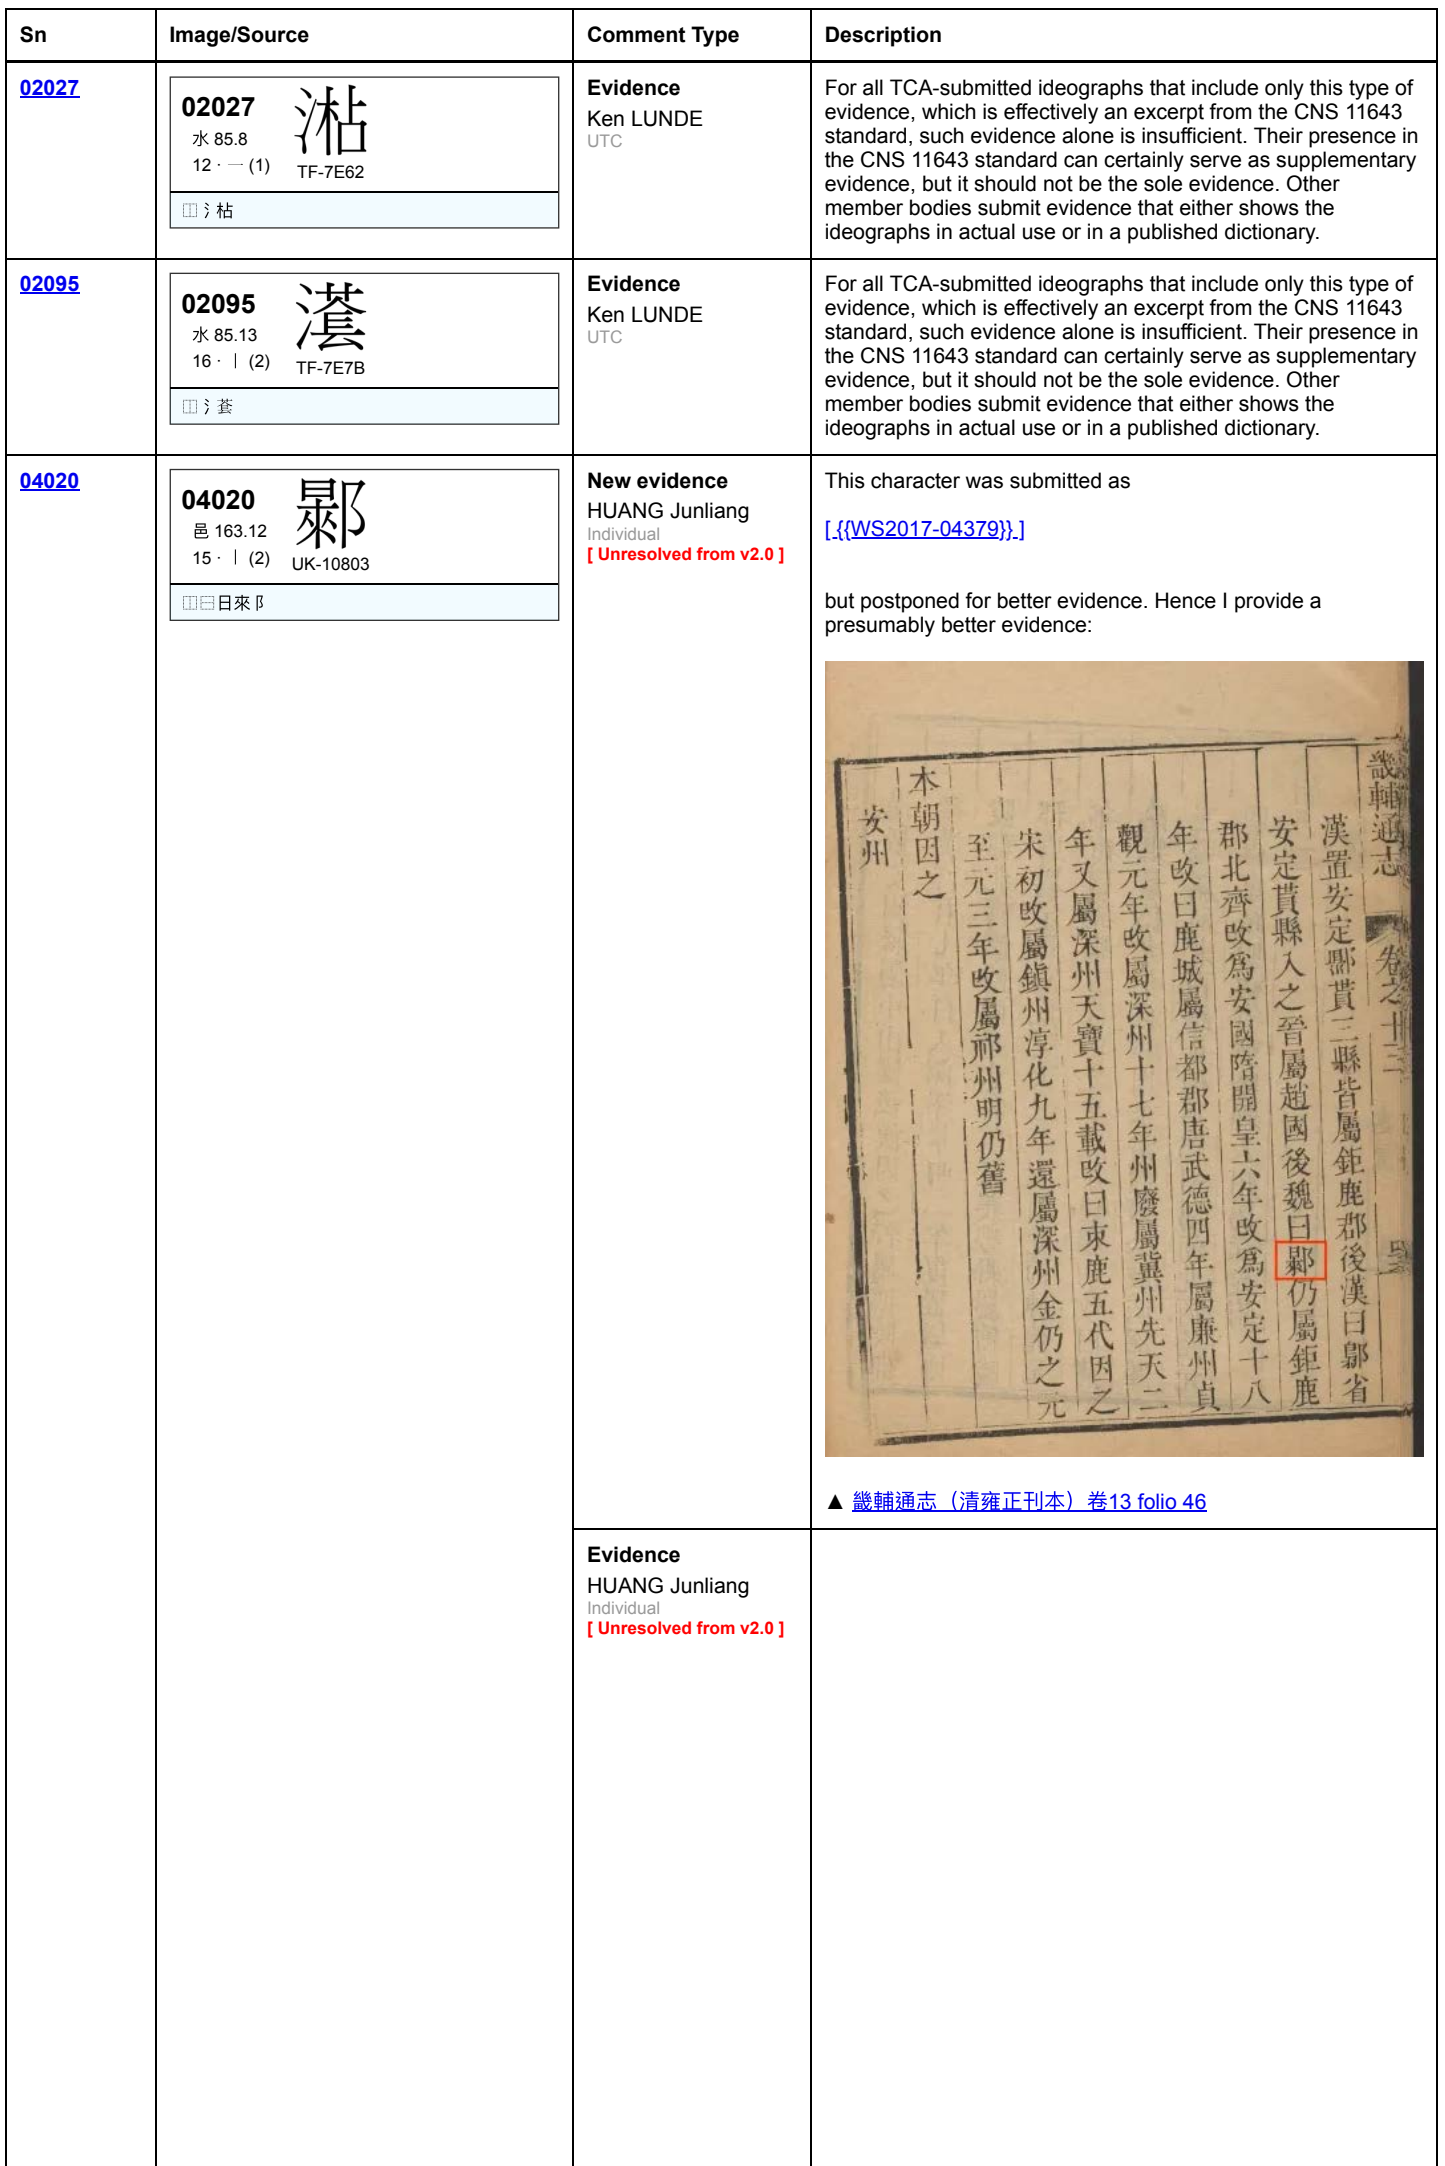 Sn Image/Source Comment Type Description
02027
02027
水 85.8
12 · 一 (1)
TF-7E62
⿰氵枯
Evidence
Ken LUNDE
UTC
For all TCA-submitted ideographs that include only this type of
evidence, which is effectively an excerpt from the CNS 11643
standard, such evidence alone is insufficient. Their presence in
the CNS 11643 standard can certainly serve as supplementary
evidence, but it should not be the sole evidence. Other
member bodies submit evidence that either shows the
ideographs in actual use or in a published dictionary.
02095
02095
水 85.13
16 · 丨 (2)
TF-7E7B
Evidence
Ken LUNDE
UTC
For all TCA-submitted ideographs that include only this type of
evidence, which is effectively an excerpt from the CNS 11643
standard, such evidence alone is insufficient. Their presence in
the CNS 11643 standard can certainly serve as supplementary
evidence, but it should not be the sole evidence. Other
member bodies submit evidence that either shows the
ideographs in actual use or in a published dictionary.
04020
04020
邑 163.12
15 · 丨 (2)
UK-10803
⿰⿱日來阝
New evidence
HUANG Junliang
Individual
[ Unresolved from v2.0 ]
This character was submitted as
[ {{WS2017-04379}} ]
but postponed for better evidence. Hence I provide a
presumably better evidence:
畿輔通志 卷之十三
漢置安定鄡貰三縣皆屬鉅鹿郡後漢曰鄡省
安定貰縣入之晉屬趙國後魏曰⿰⿱日來阝仍屬鉅鹿
郡北齊改爲安國隋開皇六年改爲安定十八
年改曰鹿城屬信都郡唐武德四年屬廉州貞
觀元年改屬深州十七年州廢屬冀州先天二
年又屬深州天寶十五載改曰束鹿五代因之
宋初改屬鎮州淳化九年還屬深州金仍之元
至元三年改屬祁州明仍舊
本朝因之
安州
▲ 畿輔通志（清雍正刊本）卷13 folio 46
Evidence
HUANG Junliang
Individual
[ Unresolved from v2.0 ]